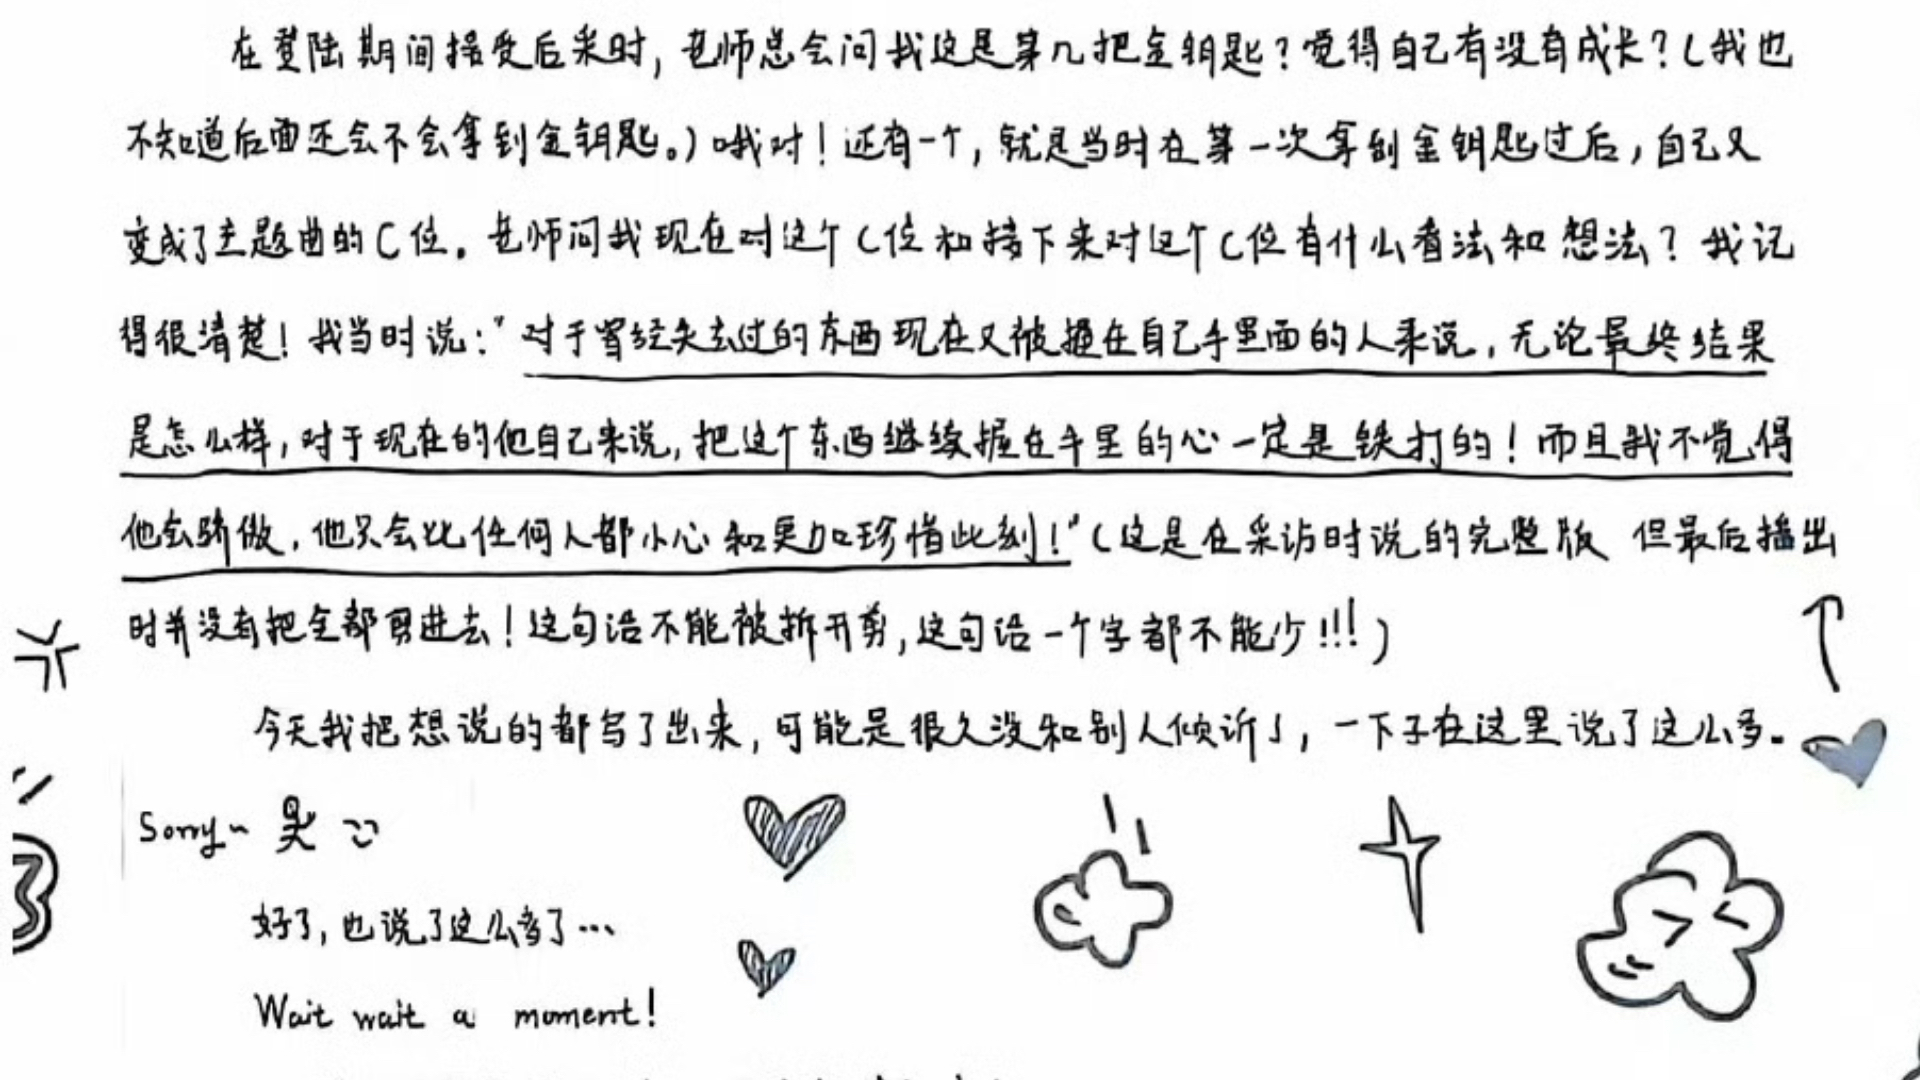 在登陆期间接受后采时，老师总会问我这是第几把金钥匙？觉得自己有没有成长？（我也
不知道后面还会不会拿到金钥匙。）哦对！还有一个，就是当时在第一次拿到金钥匙过后，自己又
变成了主题曲的C位。老师问我现在对这个C位和接下来对这个C位有什么看法和想法？我记
得很清楚！我当时说：“对于曾经失去过的东西现在又被握在自己手里面的人来说，无论最终结果
是怎么样，对于现在的他自己来说，把这个东西继续握在手里的心一定是铁打的！而且我不觉得
他会骄傲，他只会比任何人都小心和更加珍惜此刻！”（这是在采访时说的完整版 但最后播出
时并没有把全部剪进去！这句话不能被拆开剪，这句话一个字都不能少!!!）
今天我把想说的都写了出来，可能是很久没和别人倾诉了，一下子在这里说了这么多。
Sorry~ 哭
好了，也说了这么多了…
Wait wait a moment!